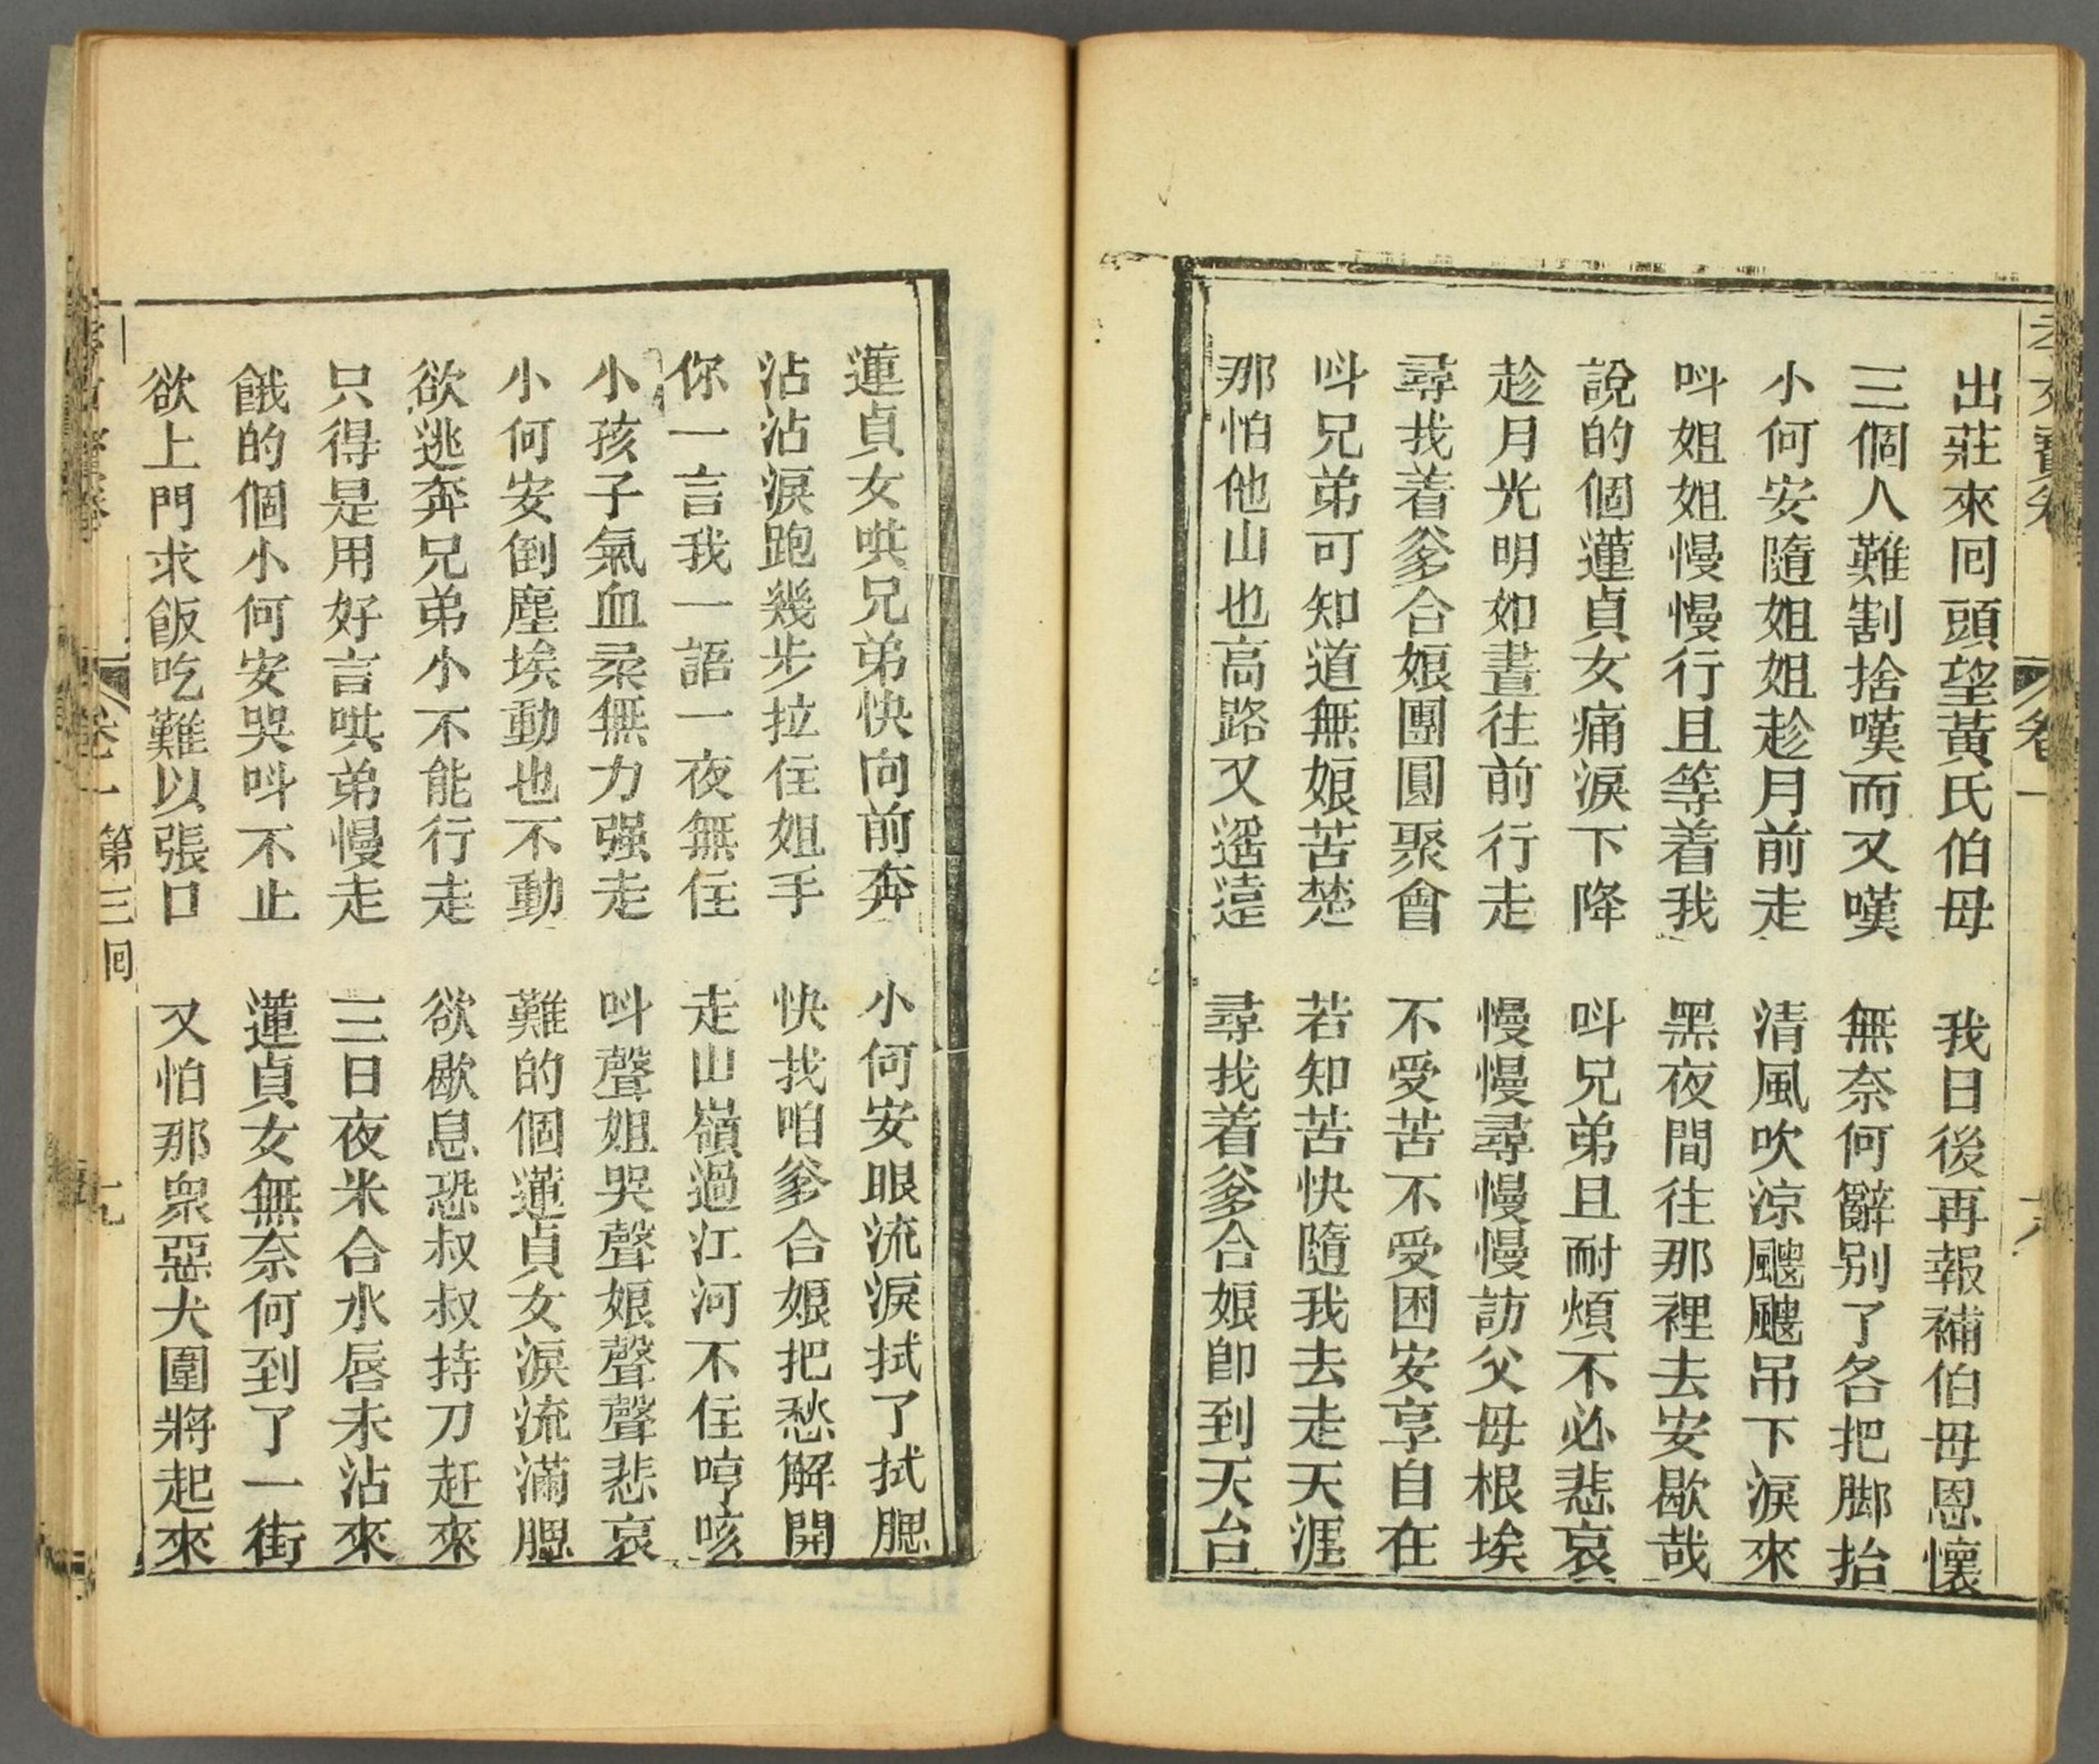 卷一
出莊來囘頭望黃氏伯母　我日後再報補伯母恩懷
三個人難割捨嘆而又嘆　無奈何辭别了各把脚抬
小何安隨姐姐趁月前走　清風吹凉颼颼吊下淚來
呌姐姐慢慢行且等着我　黑夜間往那裡去安歇哉
說的個蓮貞女痛淚下降　呌兄弟且耐煩不必悲哀
趁月光明如晝往前行走　慢慢尋慢慢訪父母根埃
尋找着爹合娘團圓聚會　不受苦不受困安享自在
呌兄弟可知道無娘苦楚　若知苦快隨我去走天涯
那怕他山也高路又遥遠　尋找着爹合娘卽到天台
蓮貞女哄兄弟快向前奔　小何安眼流淚拭了拭腮
沾沾淚跑幾步拉住姐手　快找咱爹合娘把愁解開
你一言我一語一夜無住　走山嶺過江河不住哼咳
小孩子氣血柔無力强走　呌聲姐哭聲娘聲聲悲哀
小何安倒塵埃動也不動　難的個蓮貞女淚流滿腮
欲逃奔兄弟小不能行走　欲歇息恐叔叔持刀赶來
只得是用好言哄弟慢走　三日夜米合水唇未沾來
餓的個小何安哭呌不止　蓮貞女無奈何到了一街
欲上門求飯吃難以張口　又怕那衆惡犬圍將起來
卷一　第三囘　十九